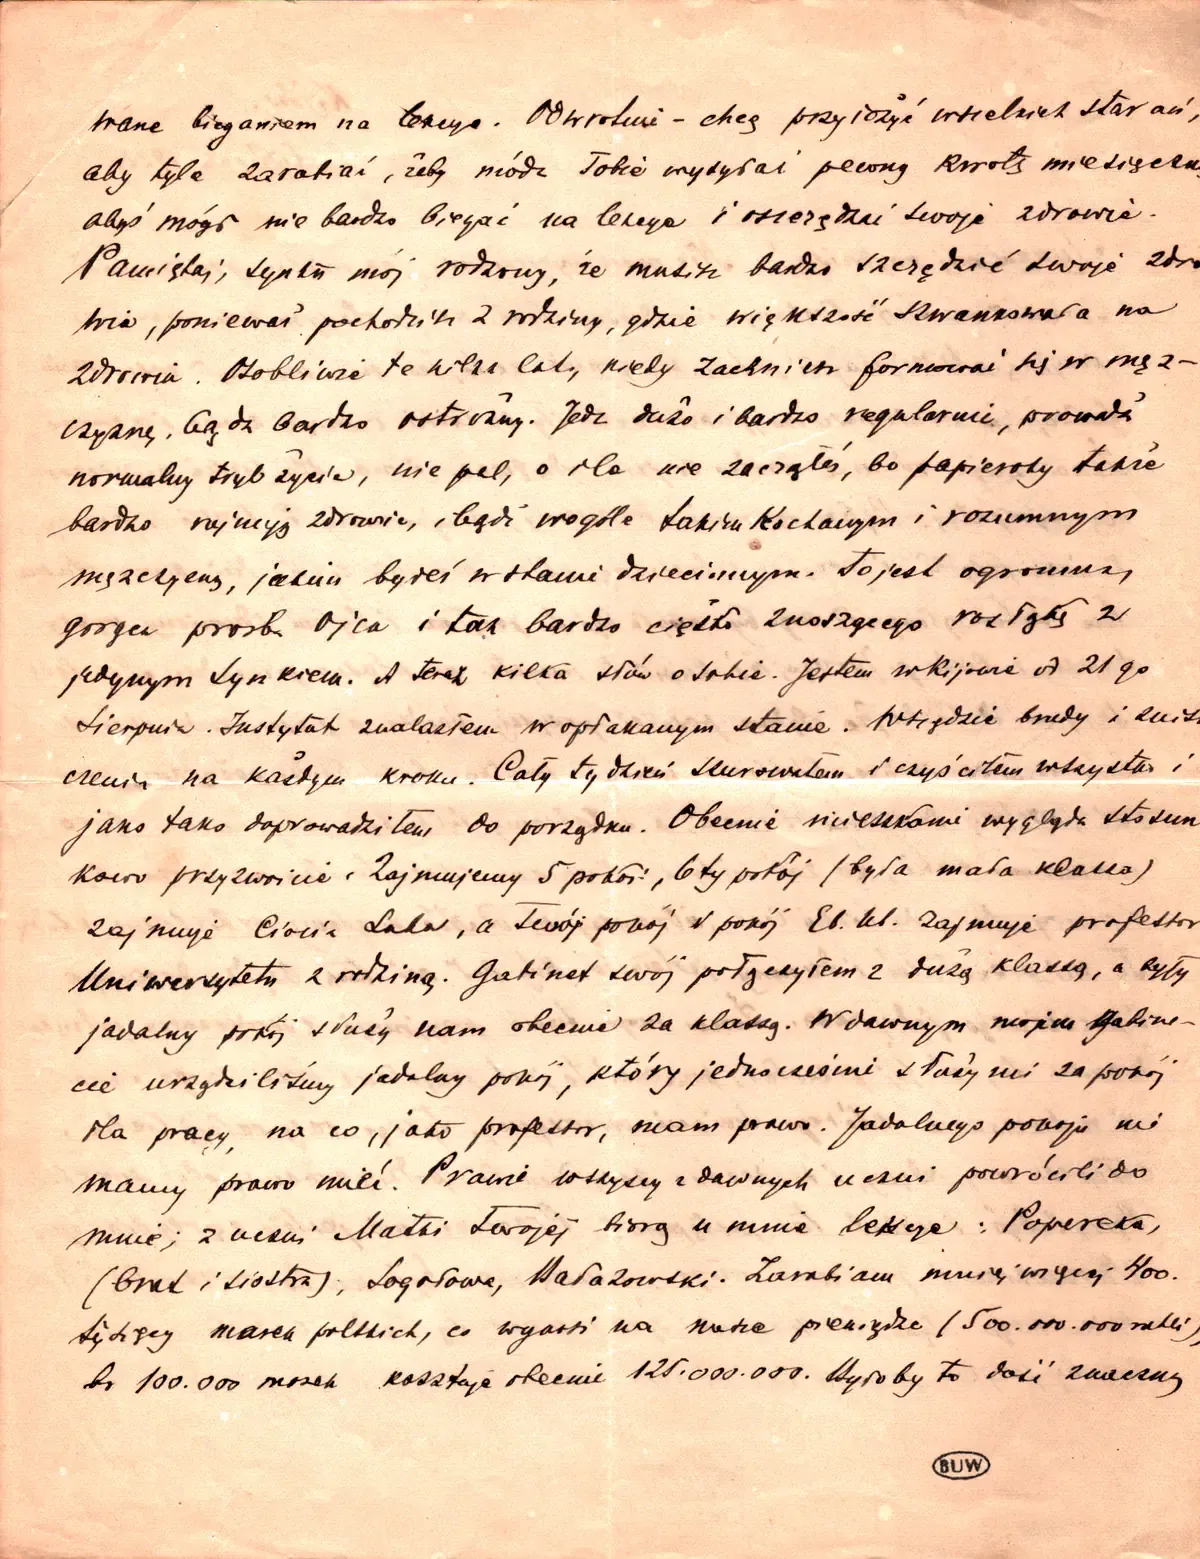 wane bieganiem na lekcye. Odwrotnie – chcę przyłożyć wszelkich starań,
aby tyle zarabiać, żeby módz Tobie wysyłać pewną kwotę miesięczną
abyś mógł nie bardzo biegać na lekcye i oszczędzać swoje zdrowie.
Pamiętaj, synku mój rodzony, że musisz bardzo szczędzić swoje zdro
wie, ponieważ pochodzisz z rodziny, gdzie większość szwankowała na
zdrowiu. Osobliwie te kilka lat, kiedy zaczniesz formować się w męz-
czyznę, bądź bardzo ostrożny. Jedz dużo i bardzo regularnie, prowadź
normalny tryb życia, nie pal, o ile nie zacząłeś, bo papierosy także
bardzo rujnują zdrowie, i bądź wogóle takim kochanym i rozumnym
mężczyzną, jakim byłeś w stanie dziecinnym. To jest ogromna,
gorąca prośba Ojca i tak bardzo ciężko znoszącego rozłąkę z
jedynym synkiem. A teraz kilka słów o sobie. Jestem w Kijowie od 21 go
Sierpnia. Instytut znalazłem w opłakanym stanie. Wszędzie brudy i znisz
czenia na każdym kroku. Cały tydzień szurowałem i czyściłem wszystko i
jako tako doprowadziłem do porządku. Obecnie mieszkanie wygląda stosun
kowo przyzwoicie. Zajmujemy 5 pokoi, 6ty pokój (była mała klassa)
zajmuje Ciocia Luba, a Twój pokój i pokój El. Ul. zajmuje professor
Uniwersytetu z rodziną. Gabinet swój połączyłem z dużą klassą, a były
jadalny pokój służy nam obecnie za klassę. W dawnym mojem gabine-
cie urządziliśmy jadalny pokój, który jednocześnie służy mi za pokój
dla pracy, na co, jako professor, mam prawo. Jadalnego pokoju nie
mamy prawo mieć. Prawie wszyscy z dawnych uczni powrócili do
mnie; z uczni Matki Twojej biorą u mnie lekcye: Popereka,
(brat i siostra), Sogołowa, Hałazowski. Zarabiam mniej więcej 400.
tysięcy marek polskich, co wynosi na nasze pieniądze (500.000.000 rubli),
bo 100.000 marek kosztuje obecnie 125.000.000. Byłoby to dość znaczną
BUW